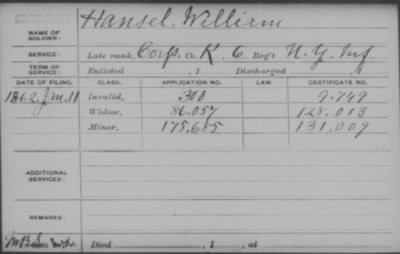 DEAD
NAME OF SOLDIER: Hansel, William
SERVICE: Late rank, Corp. Co. K, 6 Reg't N.Y. Inf.
TERM OF SERVICE: Enlisted , 1 Discharged , 1
DATE OF FILING. CLASS. APPLICATION NO. LAW. CERTIFICATE NO.
1862. Invalid, 300 9.749
Widow, 86.057 128.013
Minor, 175.685 131.009
ADDITIONAL SERVICES:
REMARKS:
Died , 1 , at